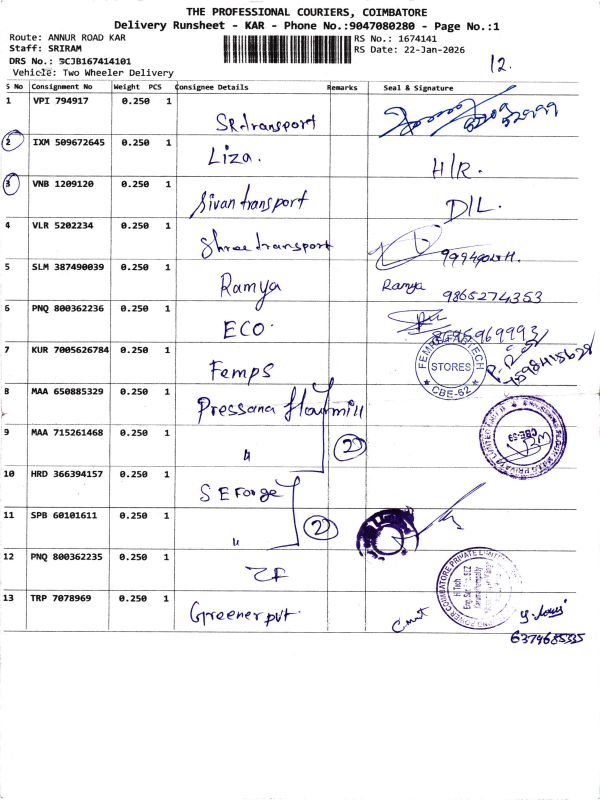 THE PROFESSIONAL COURIERS, COIMBATORE
Delivery Runsheet - KAR - Phone No.:9047080280 - Page No.:1
Route: ANNUR ROAD KAR
RS No.: 1674141
Staff: SRIRAM
RS Date: 22-Jan-2026
DRS No.: 3CJB167414101
12.
Vehicle: Two Wheeler Delivery
S No Consignment No Weight PCS Consignee Details Remarks Seal & Signature
1 VPI 794917 0.250 1 SR.transport
2 IXM 509672645 0.250 1 Liza. H/R.
3 VNB 1209120 0.250 1 Sivan transport D/L.
4 VLR 5202234 0.250 1 Shree transport
5 SLM 387490039 0.250 1 Ramya Ramya 9865274353
6 PNQ 800362236 0.250 1 ECO. 8695969993
7 KUR 7005626784 0.250 1 Femps
STORES
CBE-62
8 MAA 650885329 0.250 1 Pressana flourmill
9 MAA 715261468 0.250 1 " 2
CBE-59
10 HRD 366394157 0.250 1 SEForge
11 SPB 60101611 0.250 1 " 2
12 PNQ 800362235 0.250 1 ZF
COIMBATORE PRIVATE LIMITED
Hi Tech
13 TRP 7078969 0.250 1 Greenerpvt.
6374685335